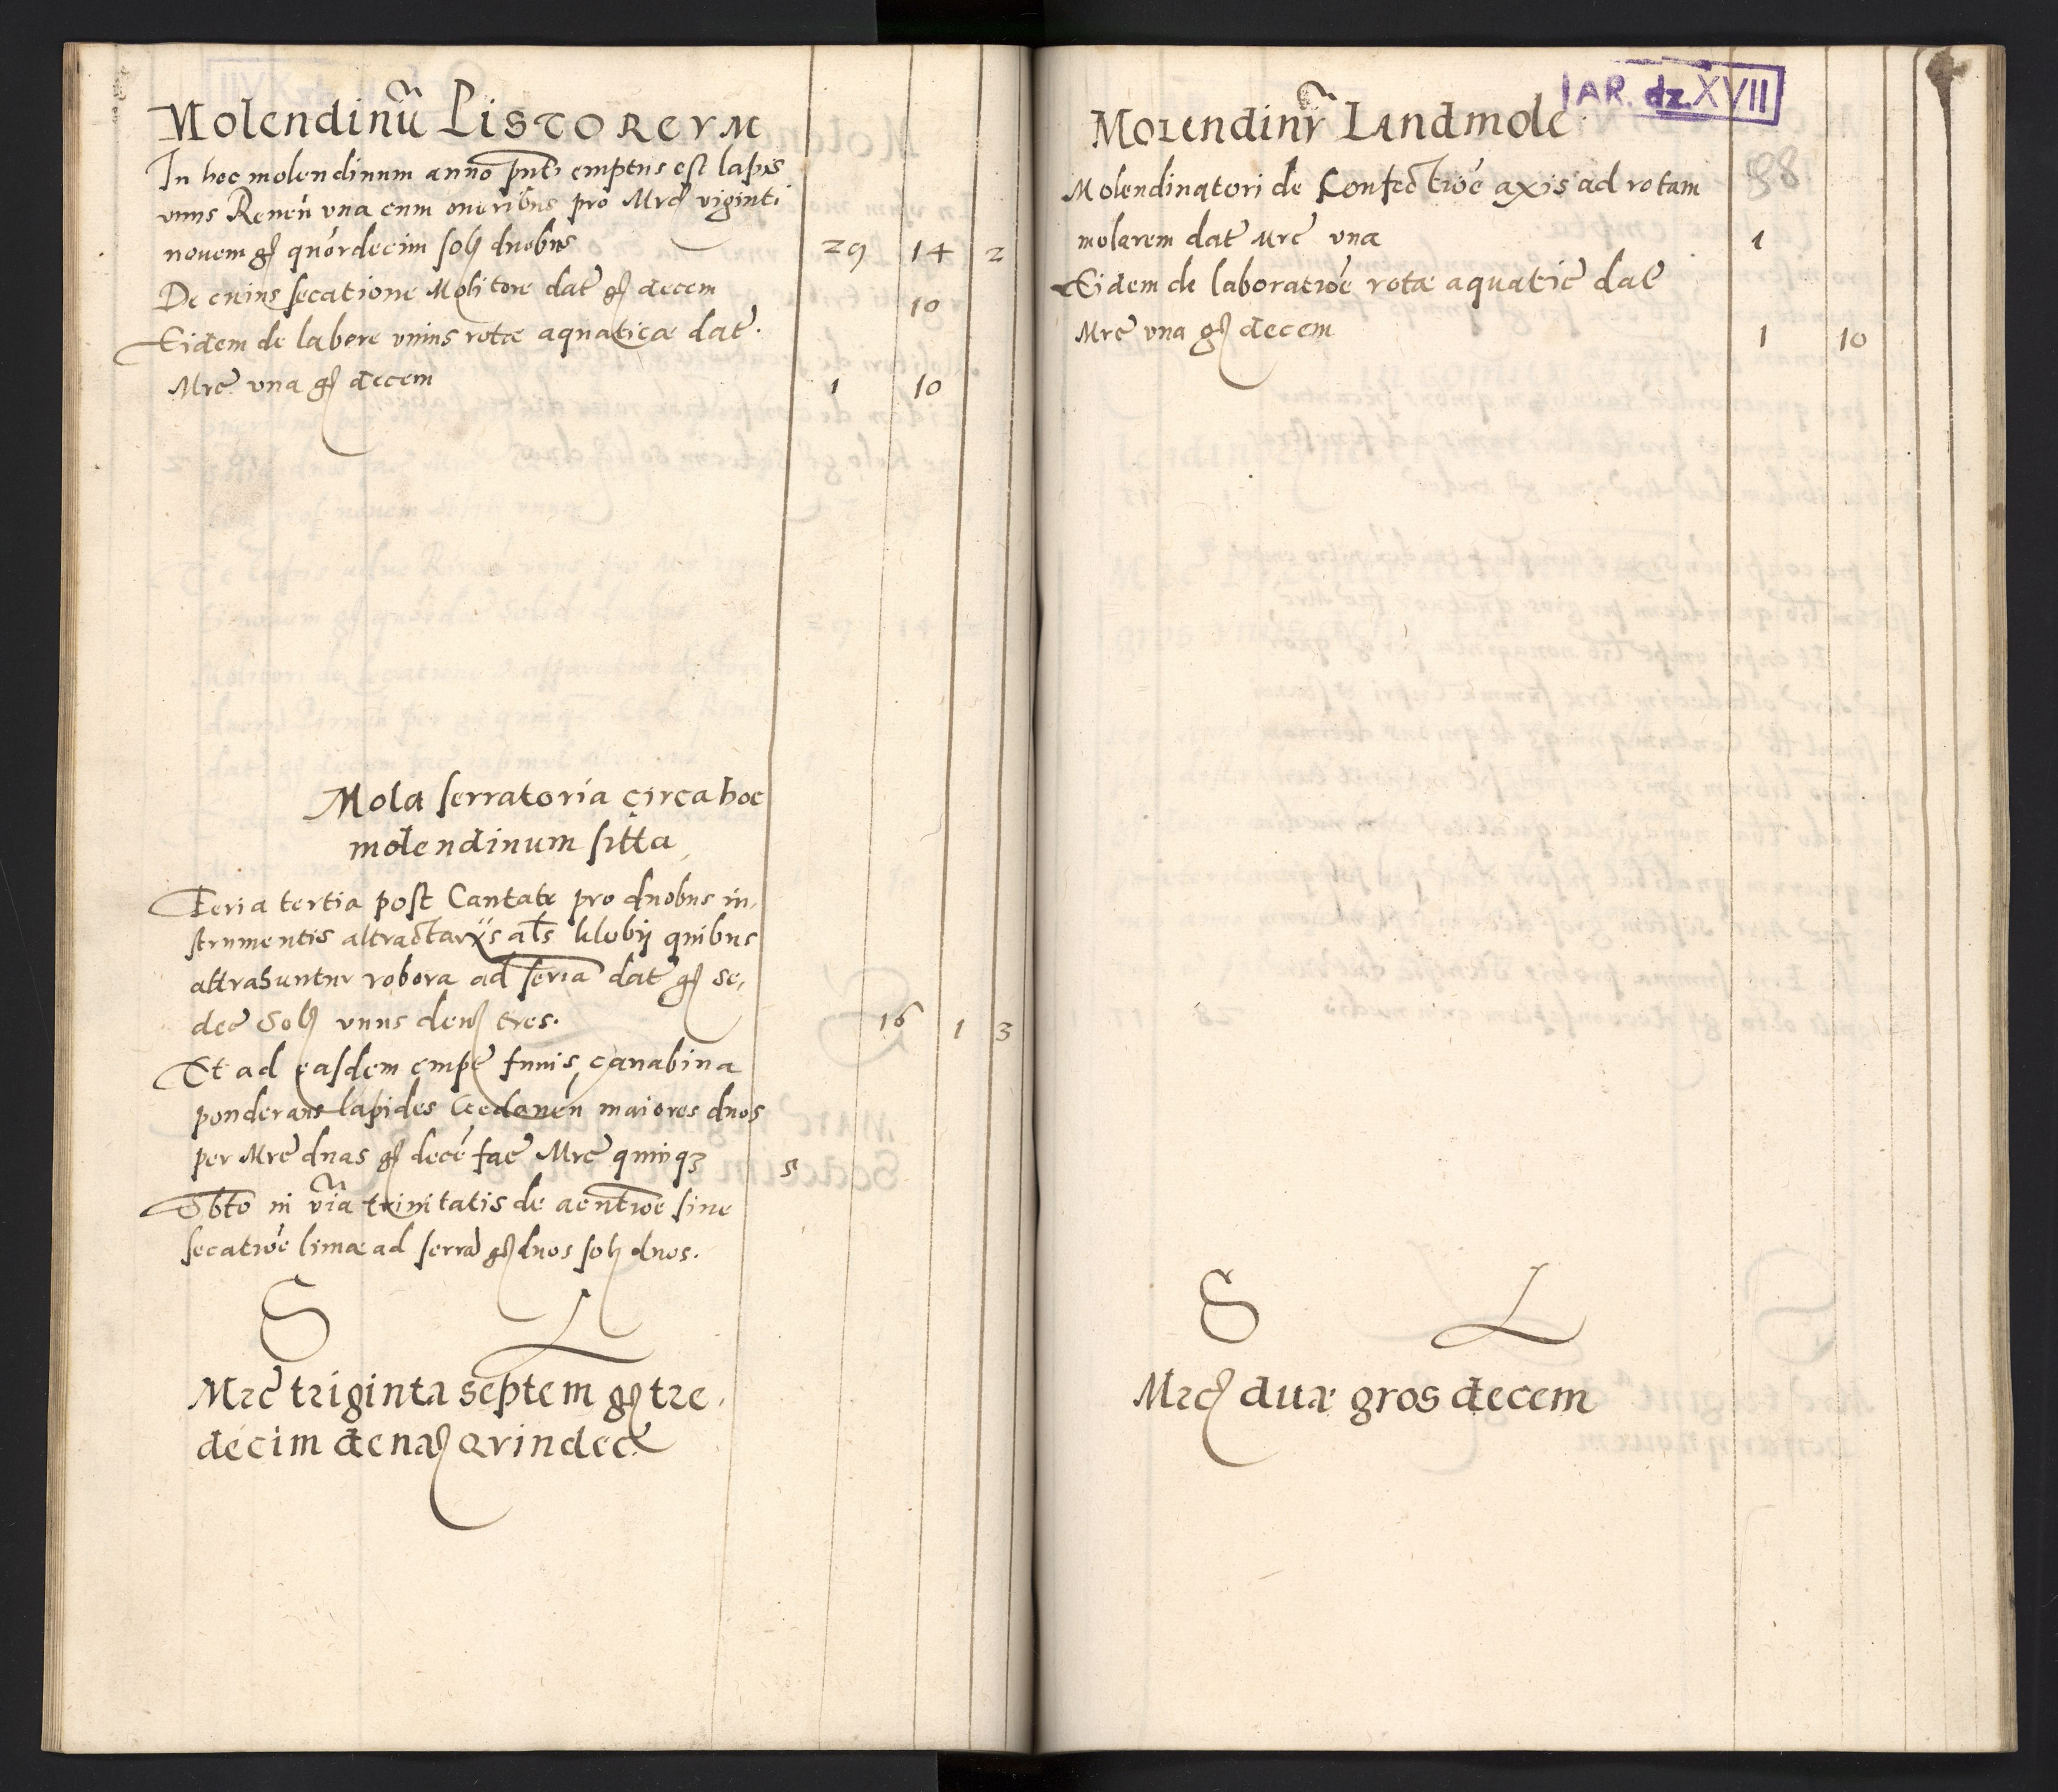 Molendinu͂ PISTORERVM
In hoc molendinum anno pn̄ti emptus est lapis
vnus Renen̄ vna cum oneribus pro Mrc viginti
nouem gſ quordecim sol duobus 29 14 2
De cuius secatione Molitore dat gſ decem 10
Eidem de labore vnius rotæ aquaticæ dat.
Mrc vna gſ decem 1 10
Mola serratoria circa hoc
molendinum sitta
Feria tertia post Cantate pro duobus in,
strumentis attractarijs al̄s klobij quibus
attrahuntur robora ad seria dat gſ se,
dec Sol vnus den tres. 16 1 3
Et ad easdem empt funis canabina
ponderans lapides Gedanen̄ maiores duos
per Mrc duas gſ decē fac Mrc quinqꝫ 5
Sbto in via trinitatis de acn̄tioe siue
secatioe limæ ad serra gſ duos sol duos.
S L
Mrc triginta septem gſ tre,
decim dena quindec
IAR. dz. XVII
Molendinu͂ Landmole
88
Molendinatori de Confectioe axis ad rotam
molarem dat Mrc vna 1
Eidem de laboratioe rotæ aquatic dat
Mrc vna gſ decem 1 10
S L
Mrc duæ gros decem